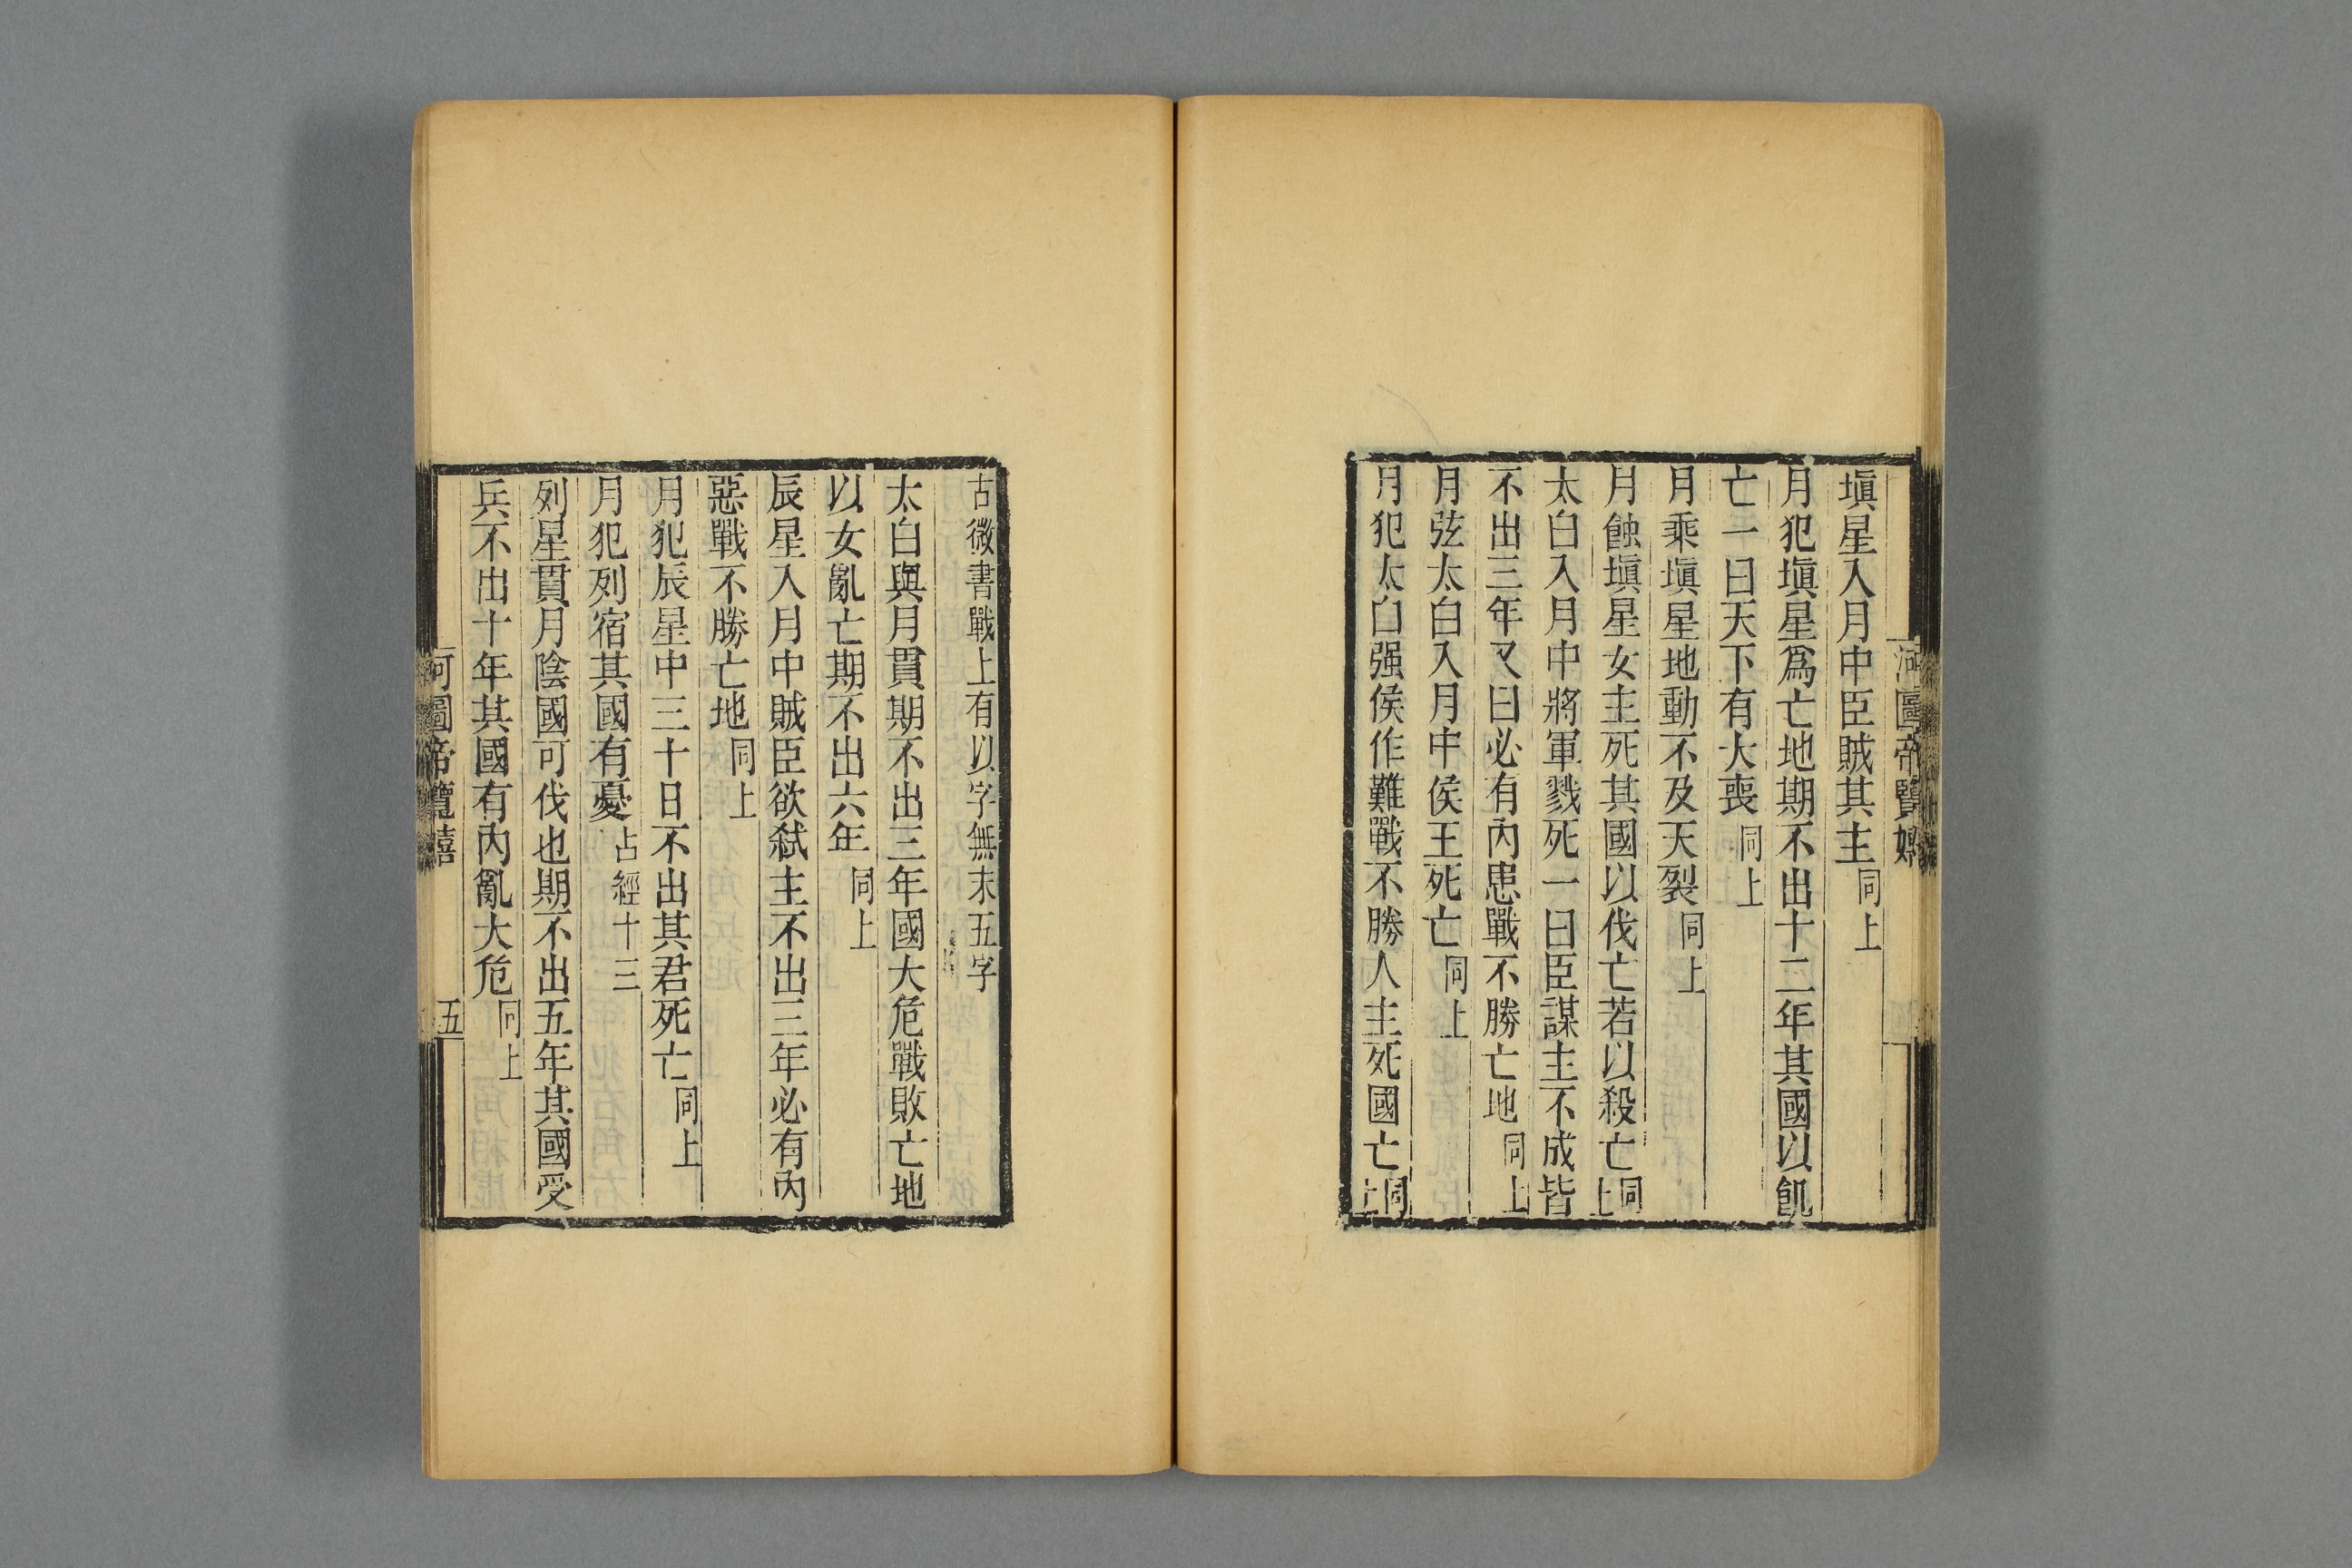 河圖帝覽嬉
塡星入月中臣賊其主同上
月犯塡星爲亡地期不出十二年其國以飢
亡一曰天下有大喪同上
月乘塡星地動不及天裂同上
月蝕塡星女主死其國以伐亡若以殺亡同上
太白入月中將軍戮死一曰臣謀主不成皆
不出三年又曰必有內患戰不勝亡地同上
月弦太白入月中侯王死亡同上
月犯太白强侯作難戰不勝人主死國亡同上
古微書戰上有以字無末五字
太白與月貫期不出三年國大危戰敗亡地
以女亂亡期不出六年同上
辰星入月中賊臣欲弑主不出三年必有內
惡戰不勝亡地同上
月犯辰星中三十日不出其君死亡同上
月犯列宿其國有憂占經十三
列星貫月陰國可伐也期不出五年其國受
兵不出十年其國有內亂大危同上
河圖帝覽嬉 五